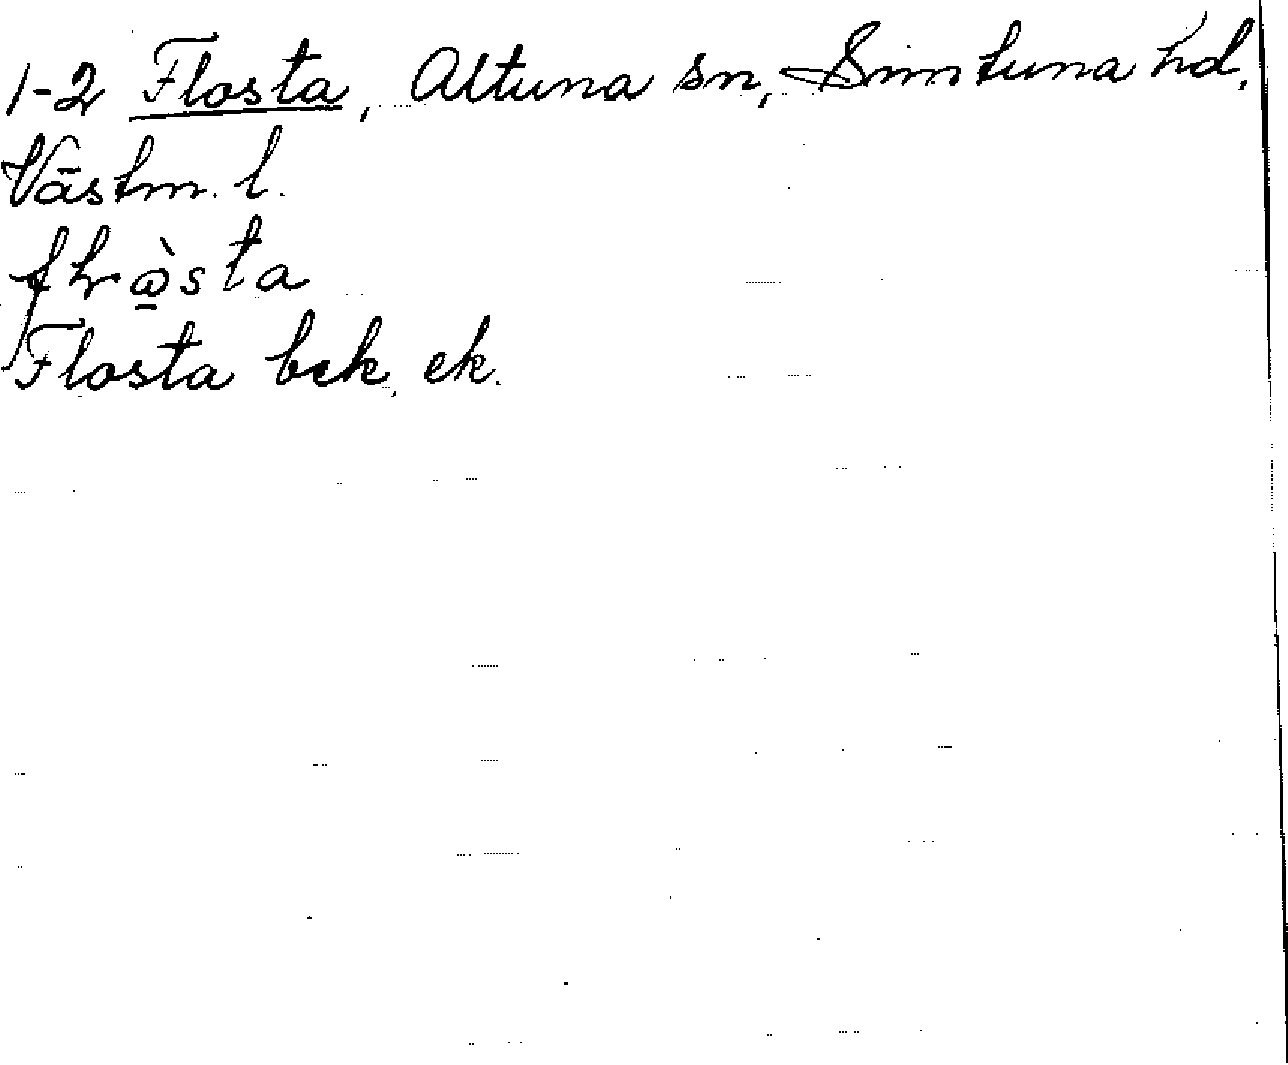 1-2 Flosta, Altuna sn, Simtuna hd,
Västm. l.
Flosta bek. ek.